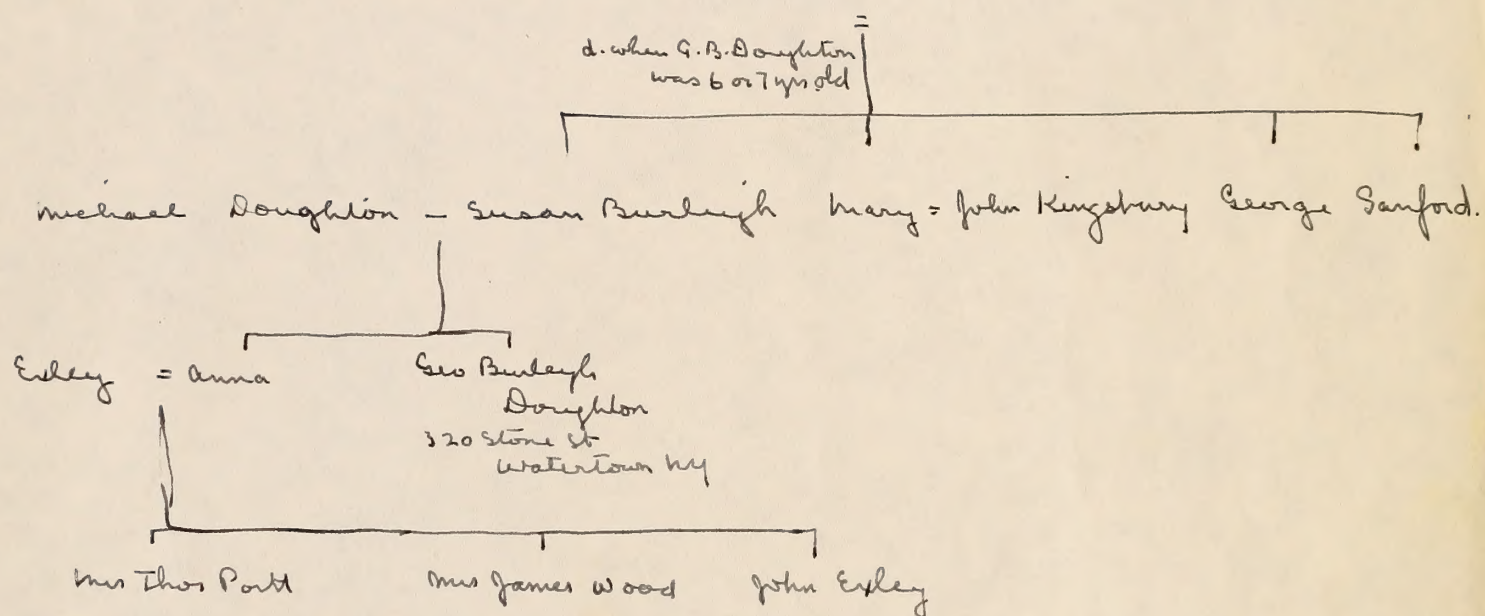 =
d. when G. B. Doughton
was 6 or 7 yrs old
Michael Doughton - Susan Burleigh Mary = John Kingsbury George Sanford.
Exley = Anna
Geo Burleigh
Doughton
320 Stone St
Watertown NY
Mrs Thos Mrs James Wood John Exley